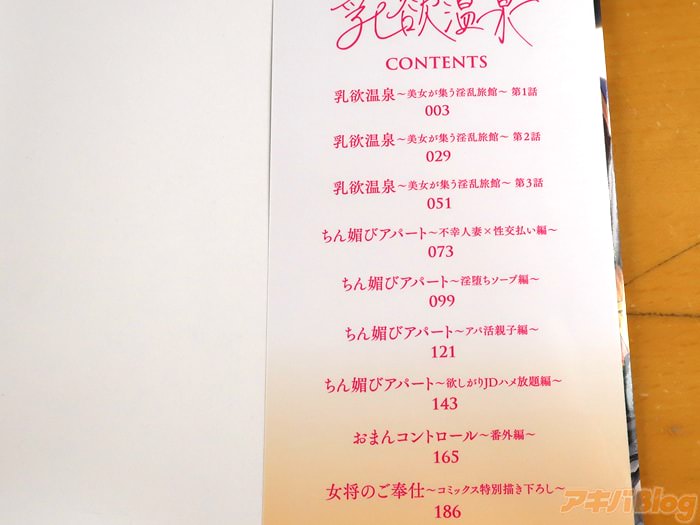 乳欲温泉
CONTENTS
乳欲温泉～美女が集う淫乱旅館～ 第1話
003
乳欲温泉～美女が集う淫乱旅館～ 第2話
029
乳欲温泉～美女が集う淫乱旅館～ 第3話
051
ちん媚びアパート～不幸人妻×性交払い編～
073
ちん媚びアパート～淫堕ちソープ編～
099
ちん媚びアパート～アパ活親子編～
121
ちん媚びアパート～欲しがりJDハメ放題編～
143
おまんコントロール～番外編～
165
女将のご奉仕～コミックス特別描き下ろし～
186
アキバBlog